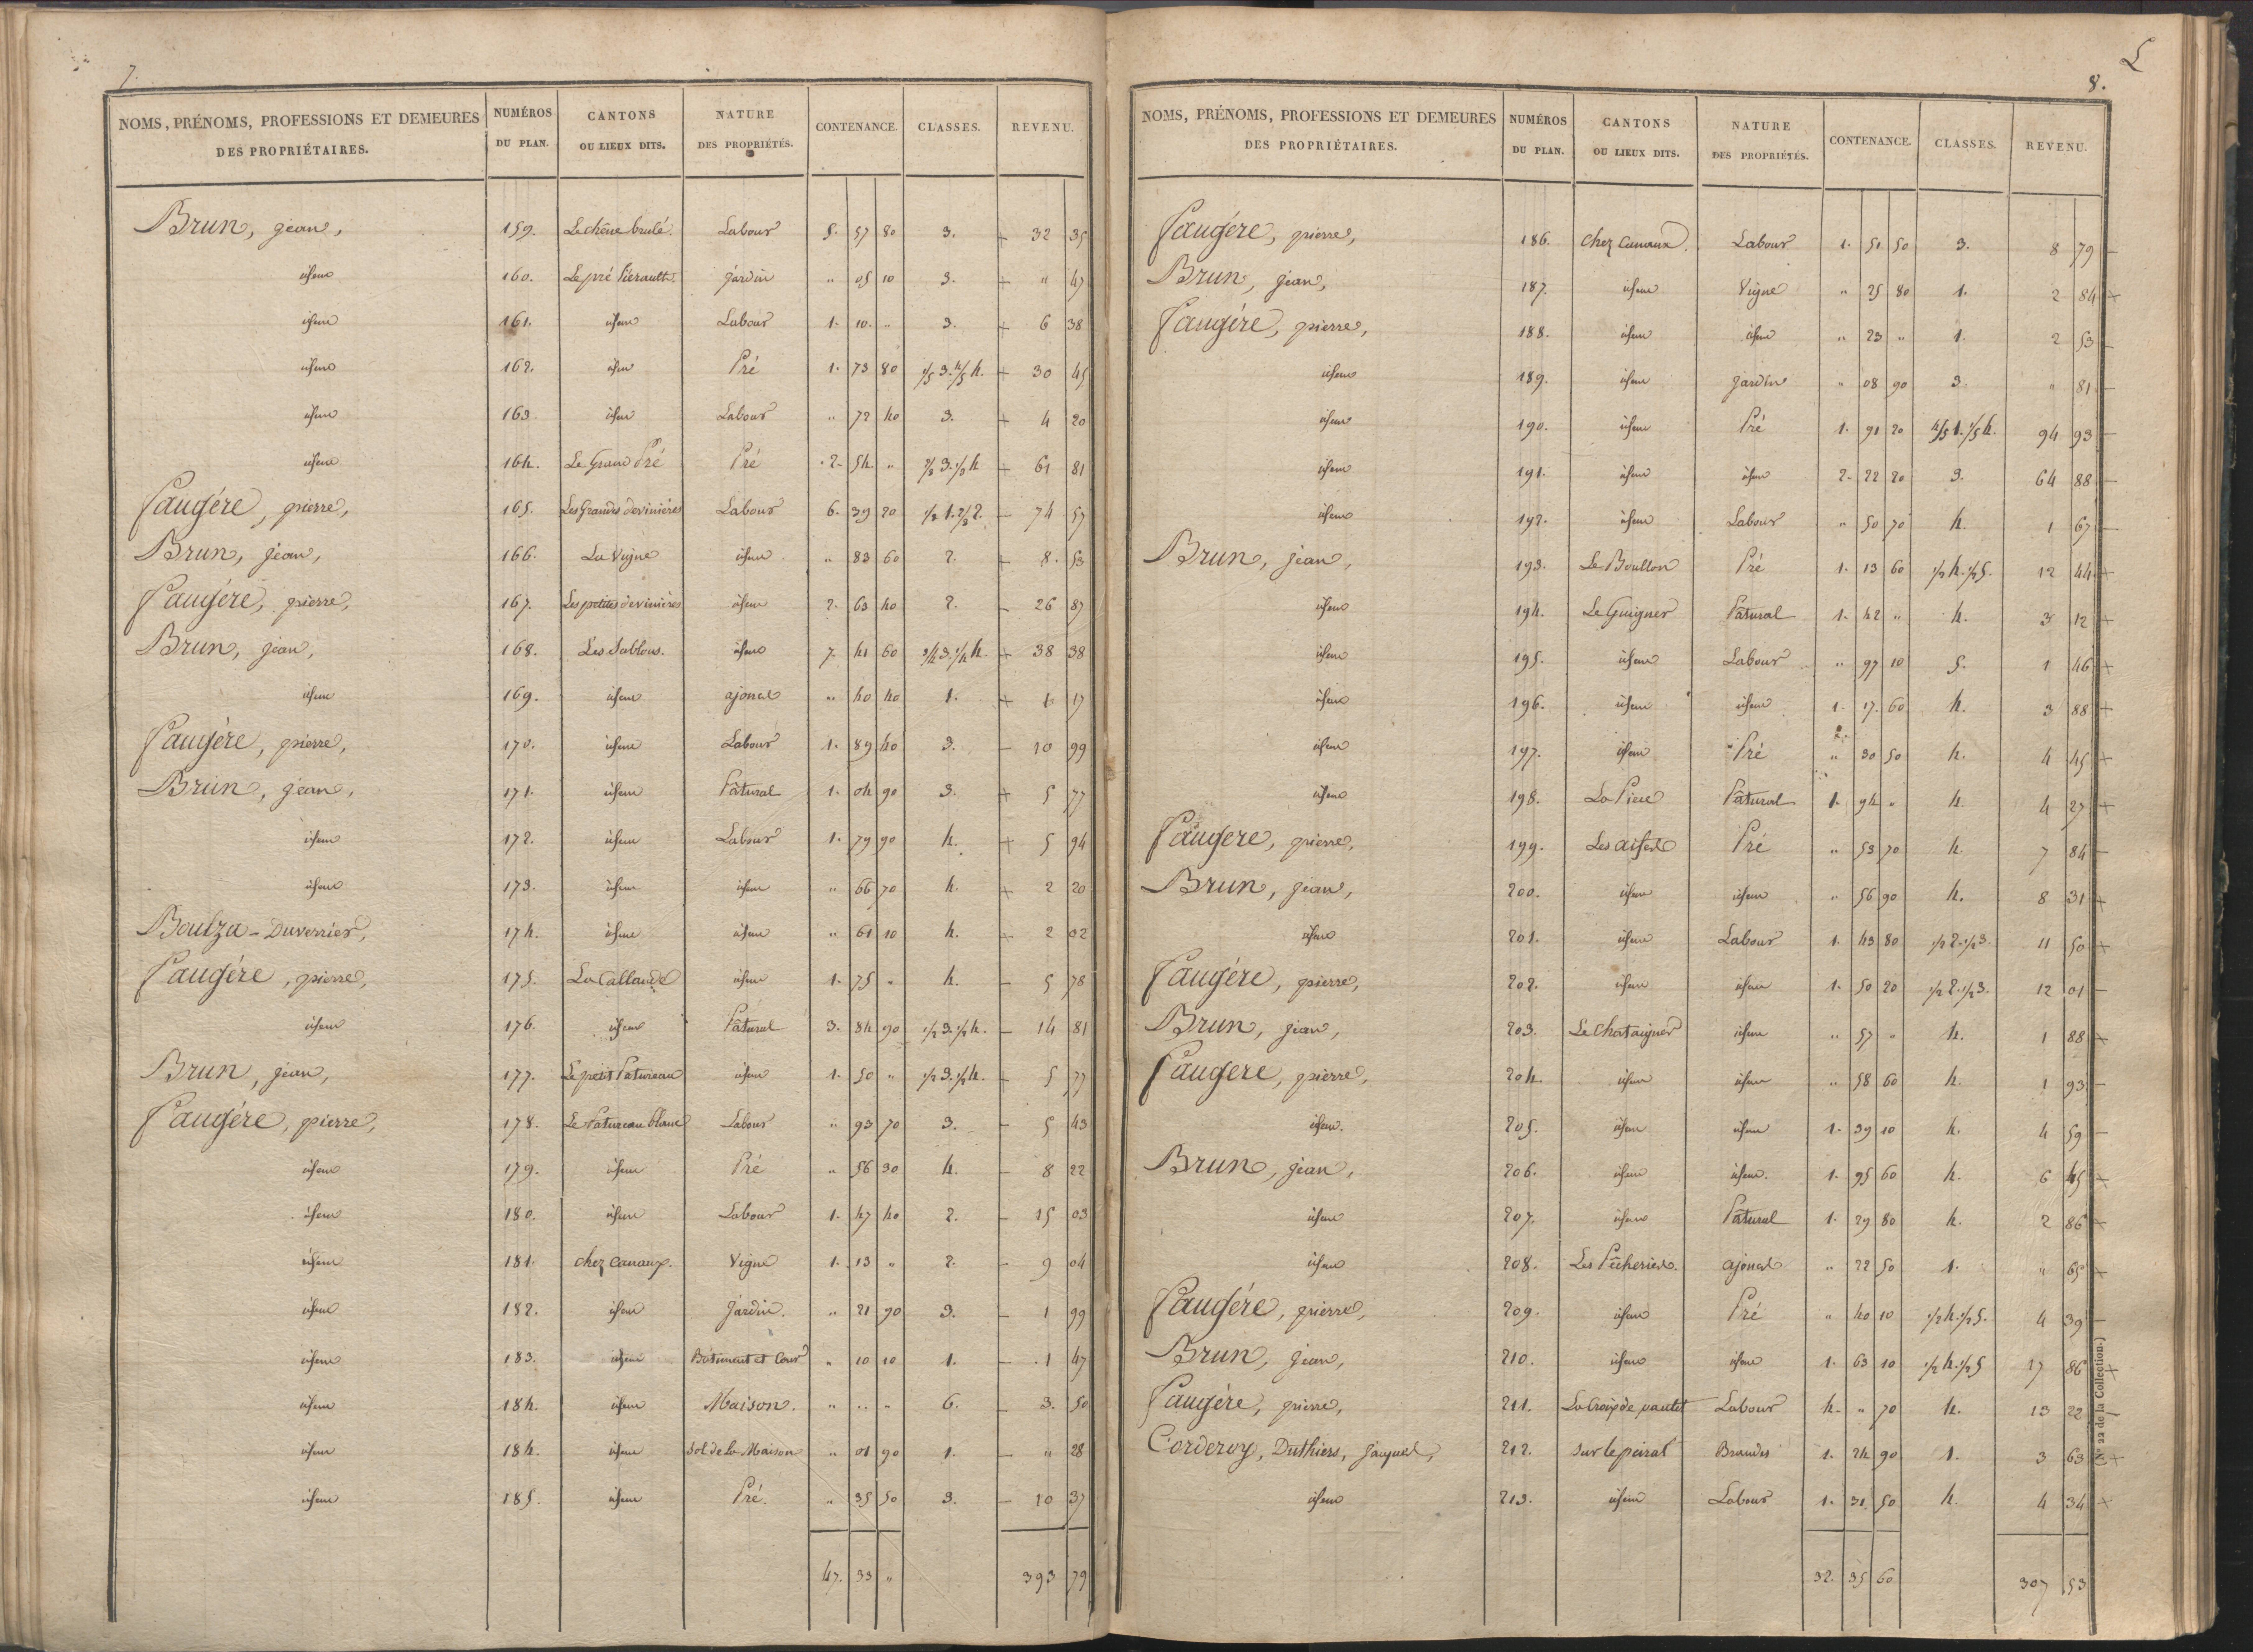 7.
NOMS, PRÉNOMS, PROFESSIONS ET DEMEURES DES PROPRIÉTAIRES. NUMÉROS DU PLAN. CANTONS OU LIEUX DITS. NATURE DES PROPRIÉTÉS. CONTENANCE. CLASSES. REVENU.
Brun, jean, 159. Le chêne brulé. Labour 5. 57 80 3. + 32 35
idem 160. Le pré Piérault. jardin " 05 10 3. + " 47
idem 161. idem Labour 1. 10. " 3. + 6 38
idem 162. idem Pré 1. 73 80 1/5 3. 4/5 4. + 30 45
idem 163. idem Labour " 72 40 3. + 4 20
idem 164. Le Grand Pré Pré 2. 54. " 2/3 3. 1/3 4 + 61 81
faugére, pierre, 165. Les Grandes devinières Labour 6. 39 20 1/3 1. 2/3 2. - 74 57
Brun, jean, 166. La Vigne idem " 83 60 2. + 8. 53
faugére, pierre, 167. Les petites devinières idem 2. 63 40 2. - 26 87
Brun, jean, 168. Les Sablons. idem 7. 41 60 3/4 3. 1/4 4. + 38 38
idem 169. idem ajoncs " 40 40 1. + 1 17
faugère, pierre, 170. idem Labour 1. 89 40 3. - 10 99
Brun, jean, 171. idem Pâtural 1. 04 90 3. + 5 77
idem 172. idem Labour 1. 79 90 4. + 5 94
idem 173. idem idem " 66 70 4. + 2 20
Boulza-Duverrier, 174. idem idem " 61 10 4. + 2 02
faugére, pierre, 175. La Callaude idem 1. 75 " 4. - 5 78
idem 176. idem Pâtural 3. 84 90 1/2 3. 1/2 4. - 14 81
Brun, jean, 177. Le petit Patureau idem 1. 50 " 1/2 3. 1/2 4. - 5 77
faugére, pierre, 178. Le Patureau blanc Labour " 93 70 3. - 5 43
idem 179. idem Pré " 56 30 4. - 8 22
idem 180. idem Labour 1. 47 40 2. - 15 03
idem 181. chez Canaux. Vigne 1. 13 " 2. - 9 04
idem 182. idem Jardin. " 21 90 3. - 1 99
idem 183. idem Bâtiment et Cour " 10 10 1. - 1 47
idem 184. idem Maison. " " " 6. - 3. 50
idem 184. idem Sol de la Maison " 01 90 1. - " 28
idem 185. idem Pré. " 35 50 3. - 10 37
47. 33 " 393 79
8.
NOMS, PRÉNOMS, PROFESSIONS ET DEMEURES DES PROPRIÉTAIRES. NUMÉROS DU PLAN. CANTONS OU LIEUX DITS. NATURE DES PROPRIÉTÉS. CONTENANCE. CLASSES. REVENU.
faugére, pierre, 186. chez Canaux. Labour 1. 51 50 3. 8 79 -
Brun, jean, 187. idem Vigne " 25 80 1. 2 84 +
faugére, pierre, 188. idem idem " 23 " 1. 2 53 -
idem 189. idem jardin " 08 90 3. " 81 -
idem 190. idem Pré 1. 91 20 4/5 1. 1/5 4. 94 93 -
idem 191. idem idem 2. 22 20 3. 64 88 -
idem 192. idem Labour " 50 70 4. 1 67 -
Brun, jean, 193. Le Boullon Pré 1. 13 60 1/2 4. 1/2 5. 12 44 +
idem 194. Le Guigner Pâtural 1. 42 " 4. 3 12 +
idem 195. idem Labour " 97 10 5. 1 46 +
idem 196. idem idem 1. 17. 60 4. 3 88 +
idem 197. idem Pré " 30 50 4. 4 45 +
idem 198. La Piece Pâtural 1. 94 " 4. 4 27 +
faugere, pierre, 199. Les aifes Pré " 53 70 4. 7 84 -
Brun, jean, 200. idem idem " 56 90 4. 8 31 +
idem 201. idem Labour 1. 43 80 1/2 2. 1/2 3. 11 50 +
faugére, pierre, 202. idem idem 1. 50 20 1/2 2. 1/2 3. 12 01 -
Brun, jean, 203. Le Chataigner idem " 57 " 4. 1 88 +
faugere, pierre, 204. idem idem " 58 60 4. 1 93 -
idem. 205. idem idem 1. 39 10 4. 4 59 -
Brun, jean, 206. idem idem. 1. 95 60 4. 6 45 +
idem 207. idem Pâtural 1. 29 80 4. 2 86 +
idem 208. Les Pêcheries. ajoncs " 22 50 1. " 65 +
faugére, pierre, 209. idem Pré " 40 10 1/2 4. 1/2 5. 4 39 -
Brun, jean, 210. idem idem 1. 63 10 1/2 4. 1/2 5 17 86 +
faugère, pierre, 211. La Croix de pautet Labour 4. " 70 4. 13 22 -
Corderoy, Duthiers, Jacques, 212. Sur le peirat Brandes 1. 24 90 1. 3 63 +
idem 213. idem Labour 1. 31. 50 4. 4 34 +
32. 35 60 307 53
(N° 22 de la Collection.)